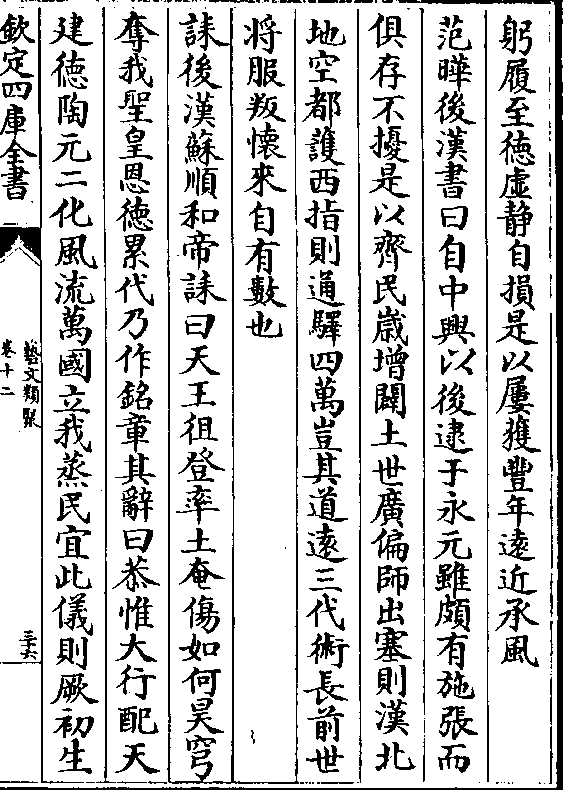 躬履至徳虛静自損是以屢獲豐年逺近承風
范曄後漢書曰自中興以後逮于永元雖頗有施張而
俱存不擾是以齊民歳増闢土世廣偏師出塞則漢北
地空都護西指則通驛四萬豈其道逺三代術長前世
将服叛懐來自有數也
誄後漢蘇順和帝誄曰天王徂登率土奄傷如何昊穹
奪我聖皇恩徳累代乃作銘章其辭曰恭惟大行配天
建徳陶元二化風流萬國立我蒸民宜此儀則厥初生
欽定四庫全書
藝文類聚
卷十二
三十六